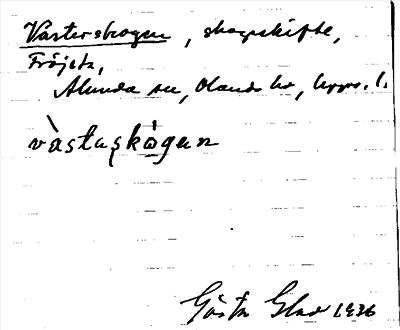 Västerskogen, skogsskifte,
Fröjeta,
Alunda sn, Olands hd, Upps. l.
västaskogen
Gösta Glad 1936